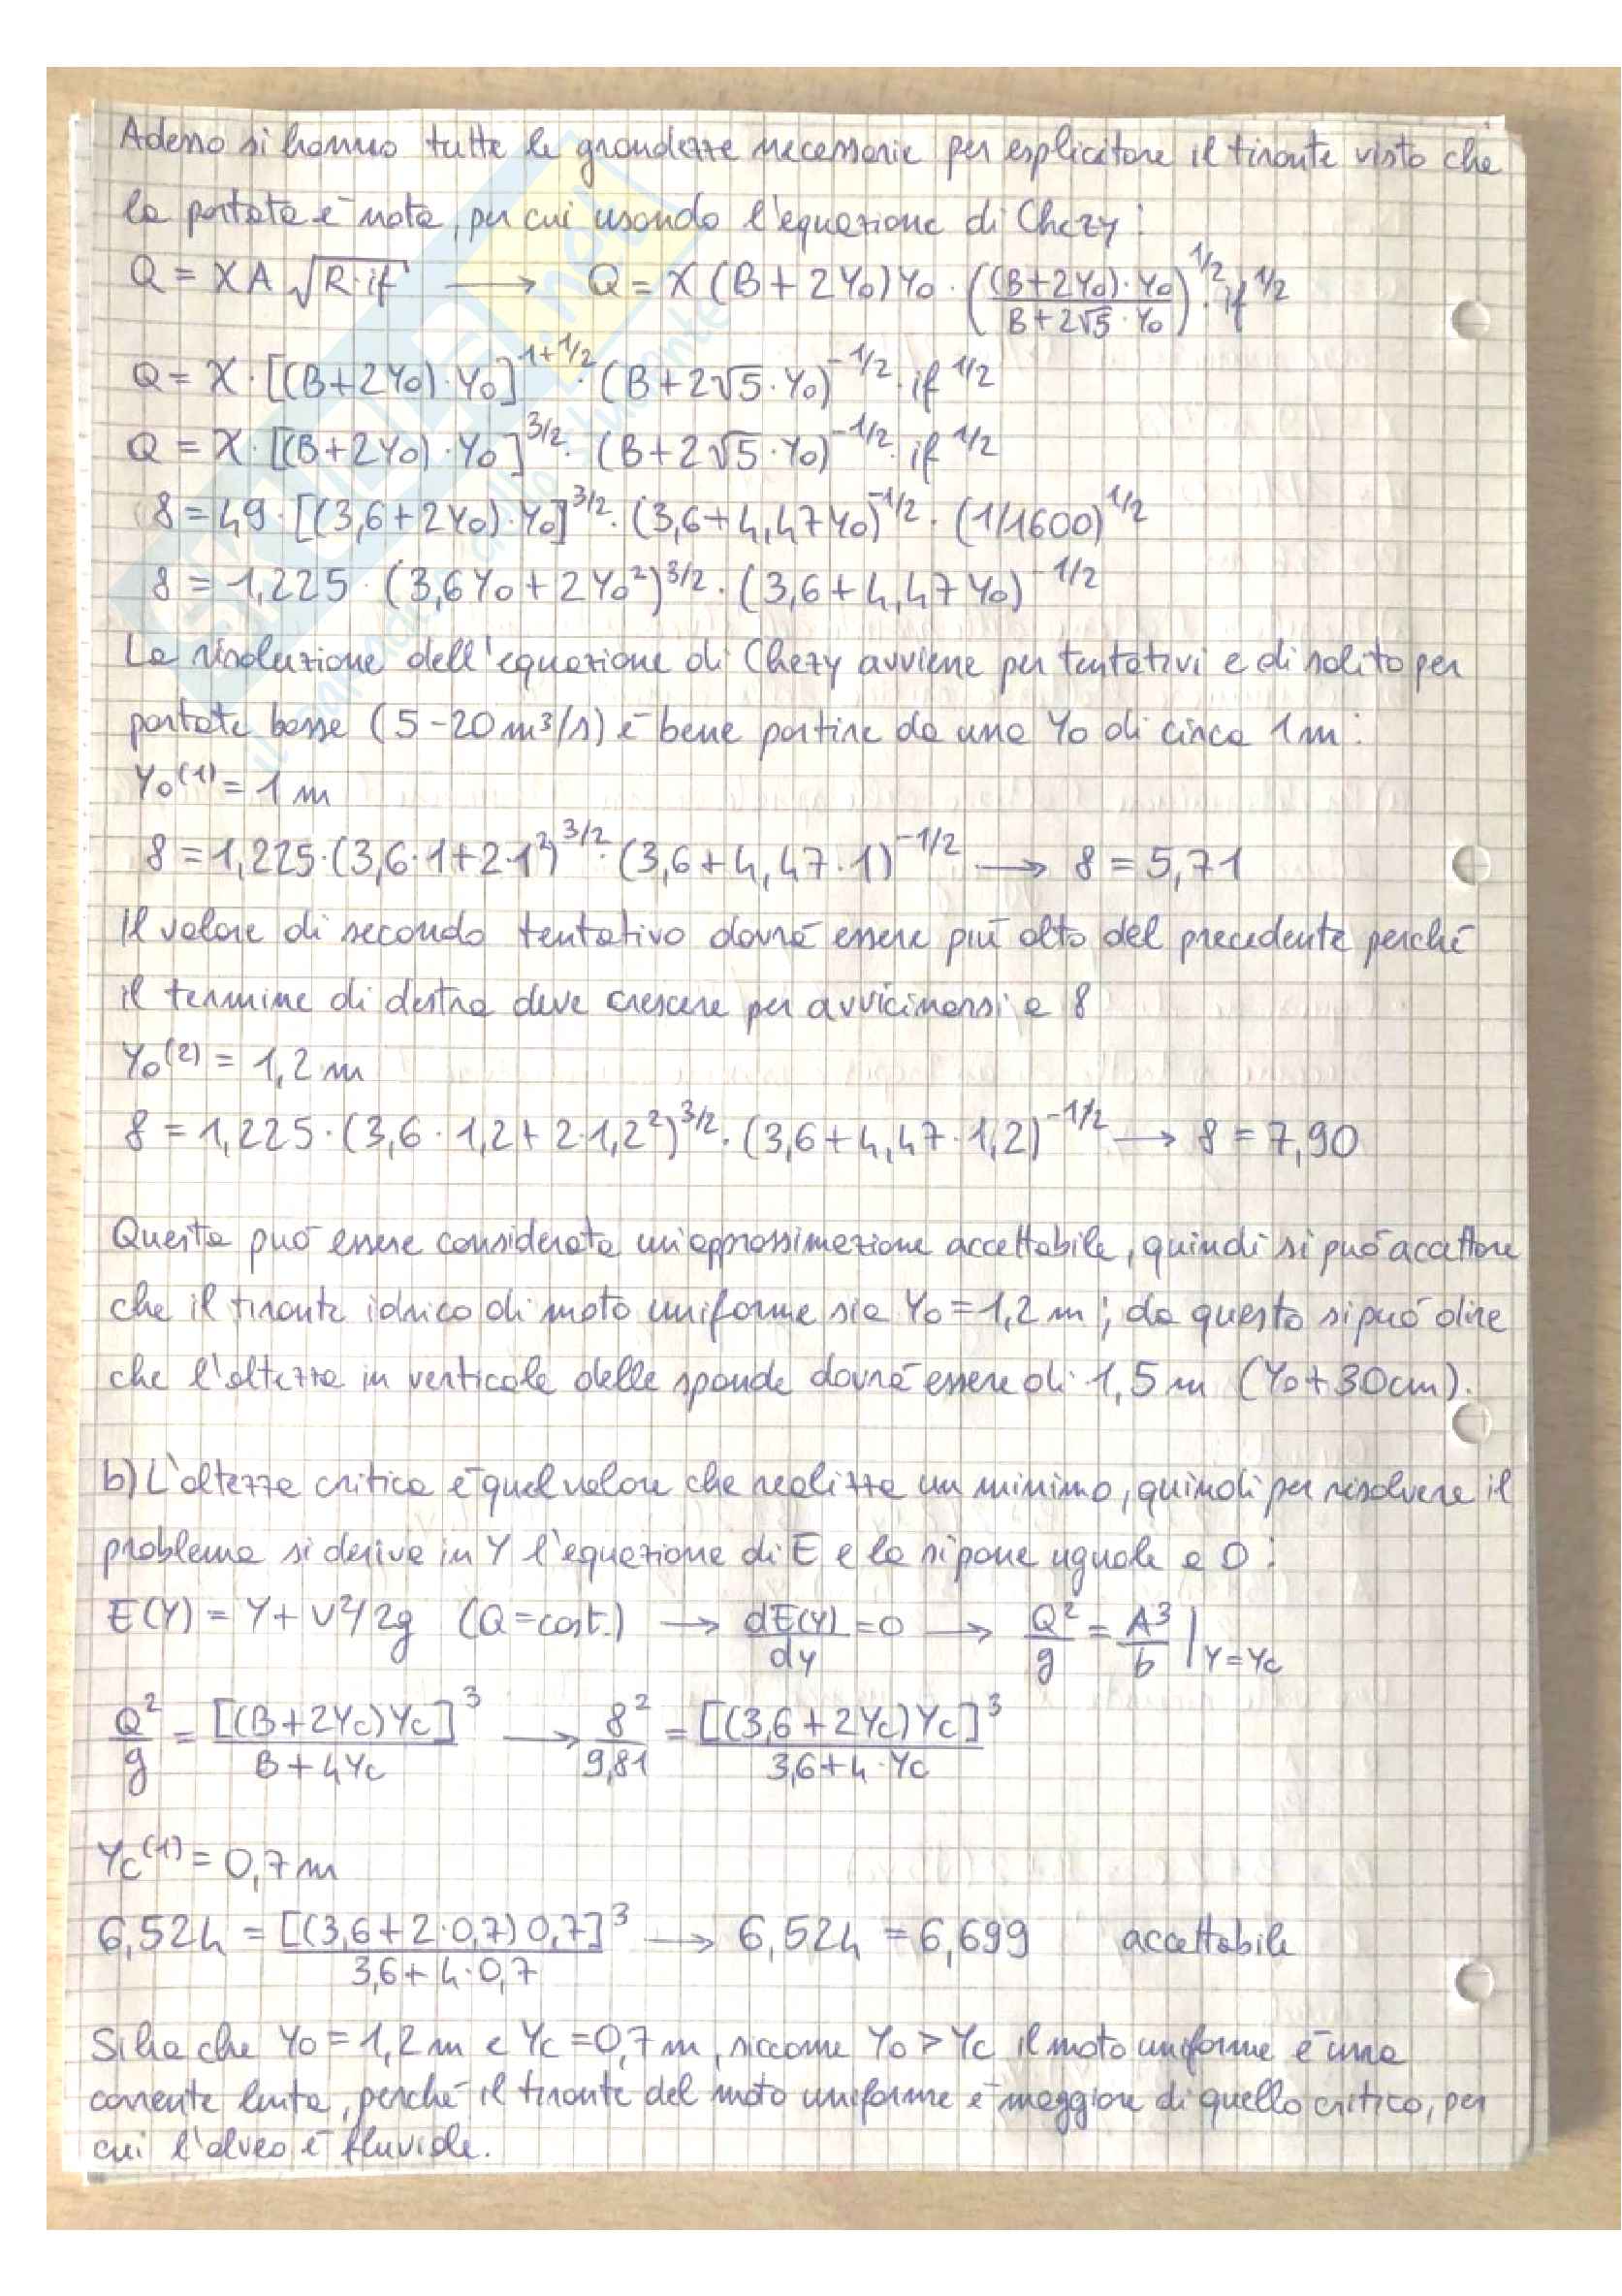 Adesso si hanno tutte le grandezze necessarie per esplicitare il tirante visto che
la portata è nota, per cui usando l'equazione di Chezy:
Q = χA √(R·if) → Q = χ(B+2Y₀)Y₀ · ((B+2Y₀)·Y₀ / (B+2√5·Y₀))^1/2 · if^1/2
Q = χ·[(B+2Y₀)·Y₀]^(1+1/2) · (B+2√5·Y₀)^-1/2 · if^1/2
Q = χ·[(B+2Y₀)·Y₀]^3/2 · (B+2√5·Y₀)^-1/2 · if^1/2
8 = 49·[(3,6+2Y₀)·Y₀]^3/2 · (3,6+4,47Y₀)^-1/2 · (1/1600)^1/2
8 = 1,225·(3,6Y₀+2Y₀²)^3/2 · (3,6+4,47Y₀)^-1/2
La risoluzione dell'equazione di Chezy avviene per tentativi e di solito per
portate basse (5-20 m³/s) è bene partire da una Y₀ di circa 1 m:
Y₀⁽¹⁾ = 1 m
8 = 1,225·(3,6·1+2·1²)^3/2 · (3,6+4,47·1)^-1/2 → 8 = 5,71
Il valore di secondo tentativo dovrà essere più alto del precedente perché
il termine di destra deve crescere per avvicinarsi a 8
Y₀⁽²⁾ = 1,2 m
8 = 1,225·(3,6·1,2+2·1,2²)^3/2 · (3,6+4,47·1,2)^-1/2 → 8 = 7,90
Questa può essere considerata un'approssimazione accettabile, quindi si può accettare
che il tirante idrico di moto uniforme sia Y₀ = 1,2 m; da questo si può dire
che l'altezza in verticale delle sponde dovrà essere di 1,5 m (Y₀+30cm).
b) L'altezza critica è quel valore che realizza un minimo, quindi per risolvere il
problema si deriva in Y l'equazione di E e la si pone uguale a 0:
E(Y) = Y + V²/2g (Q=cost.) → dE(Y)/dy = 0 → Q²/g = A³/b |Y=Yc
Q²/g = [(B+2Yc)Yc]³/(B+4Yc) → 8²/9,81 = [(3,6+2Yc)Yc]³/(3,6+4·Yc)
Yc⁽¹⁾ = 0,7 m
6,524 = [(3,6+2·0,7)0,7]³/(3,6+4·0,7) → 6,524 = 6,699 accettabile
Si ha che Y₀ = 1,2 m e Yc = 0,7 m, siccome Y₀ > Yc il moto uniforme è una
corrente lenta, perché il tirante del moto uniforme è maggiore di quello critico, per
cui l'alveo è fluviale.